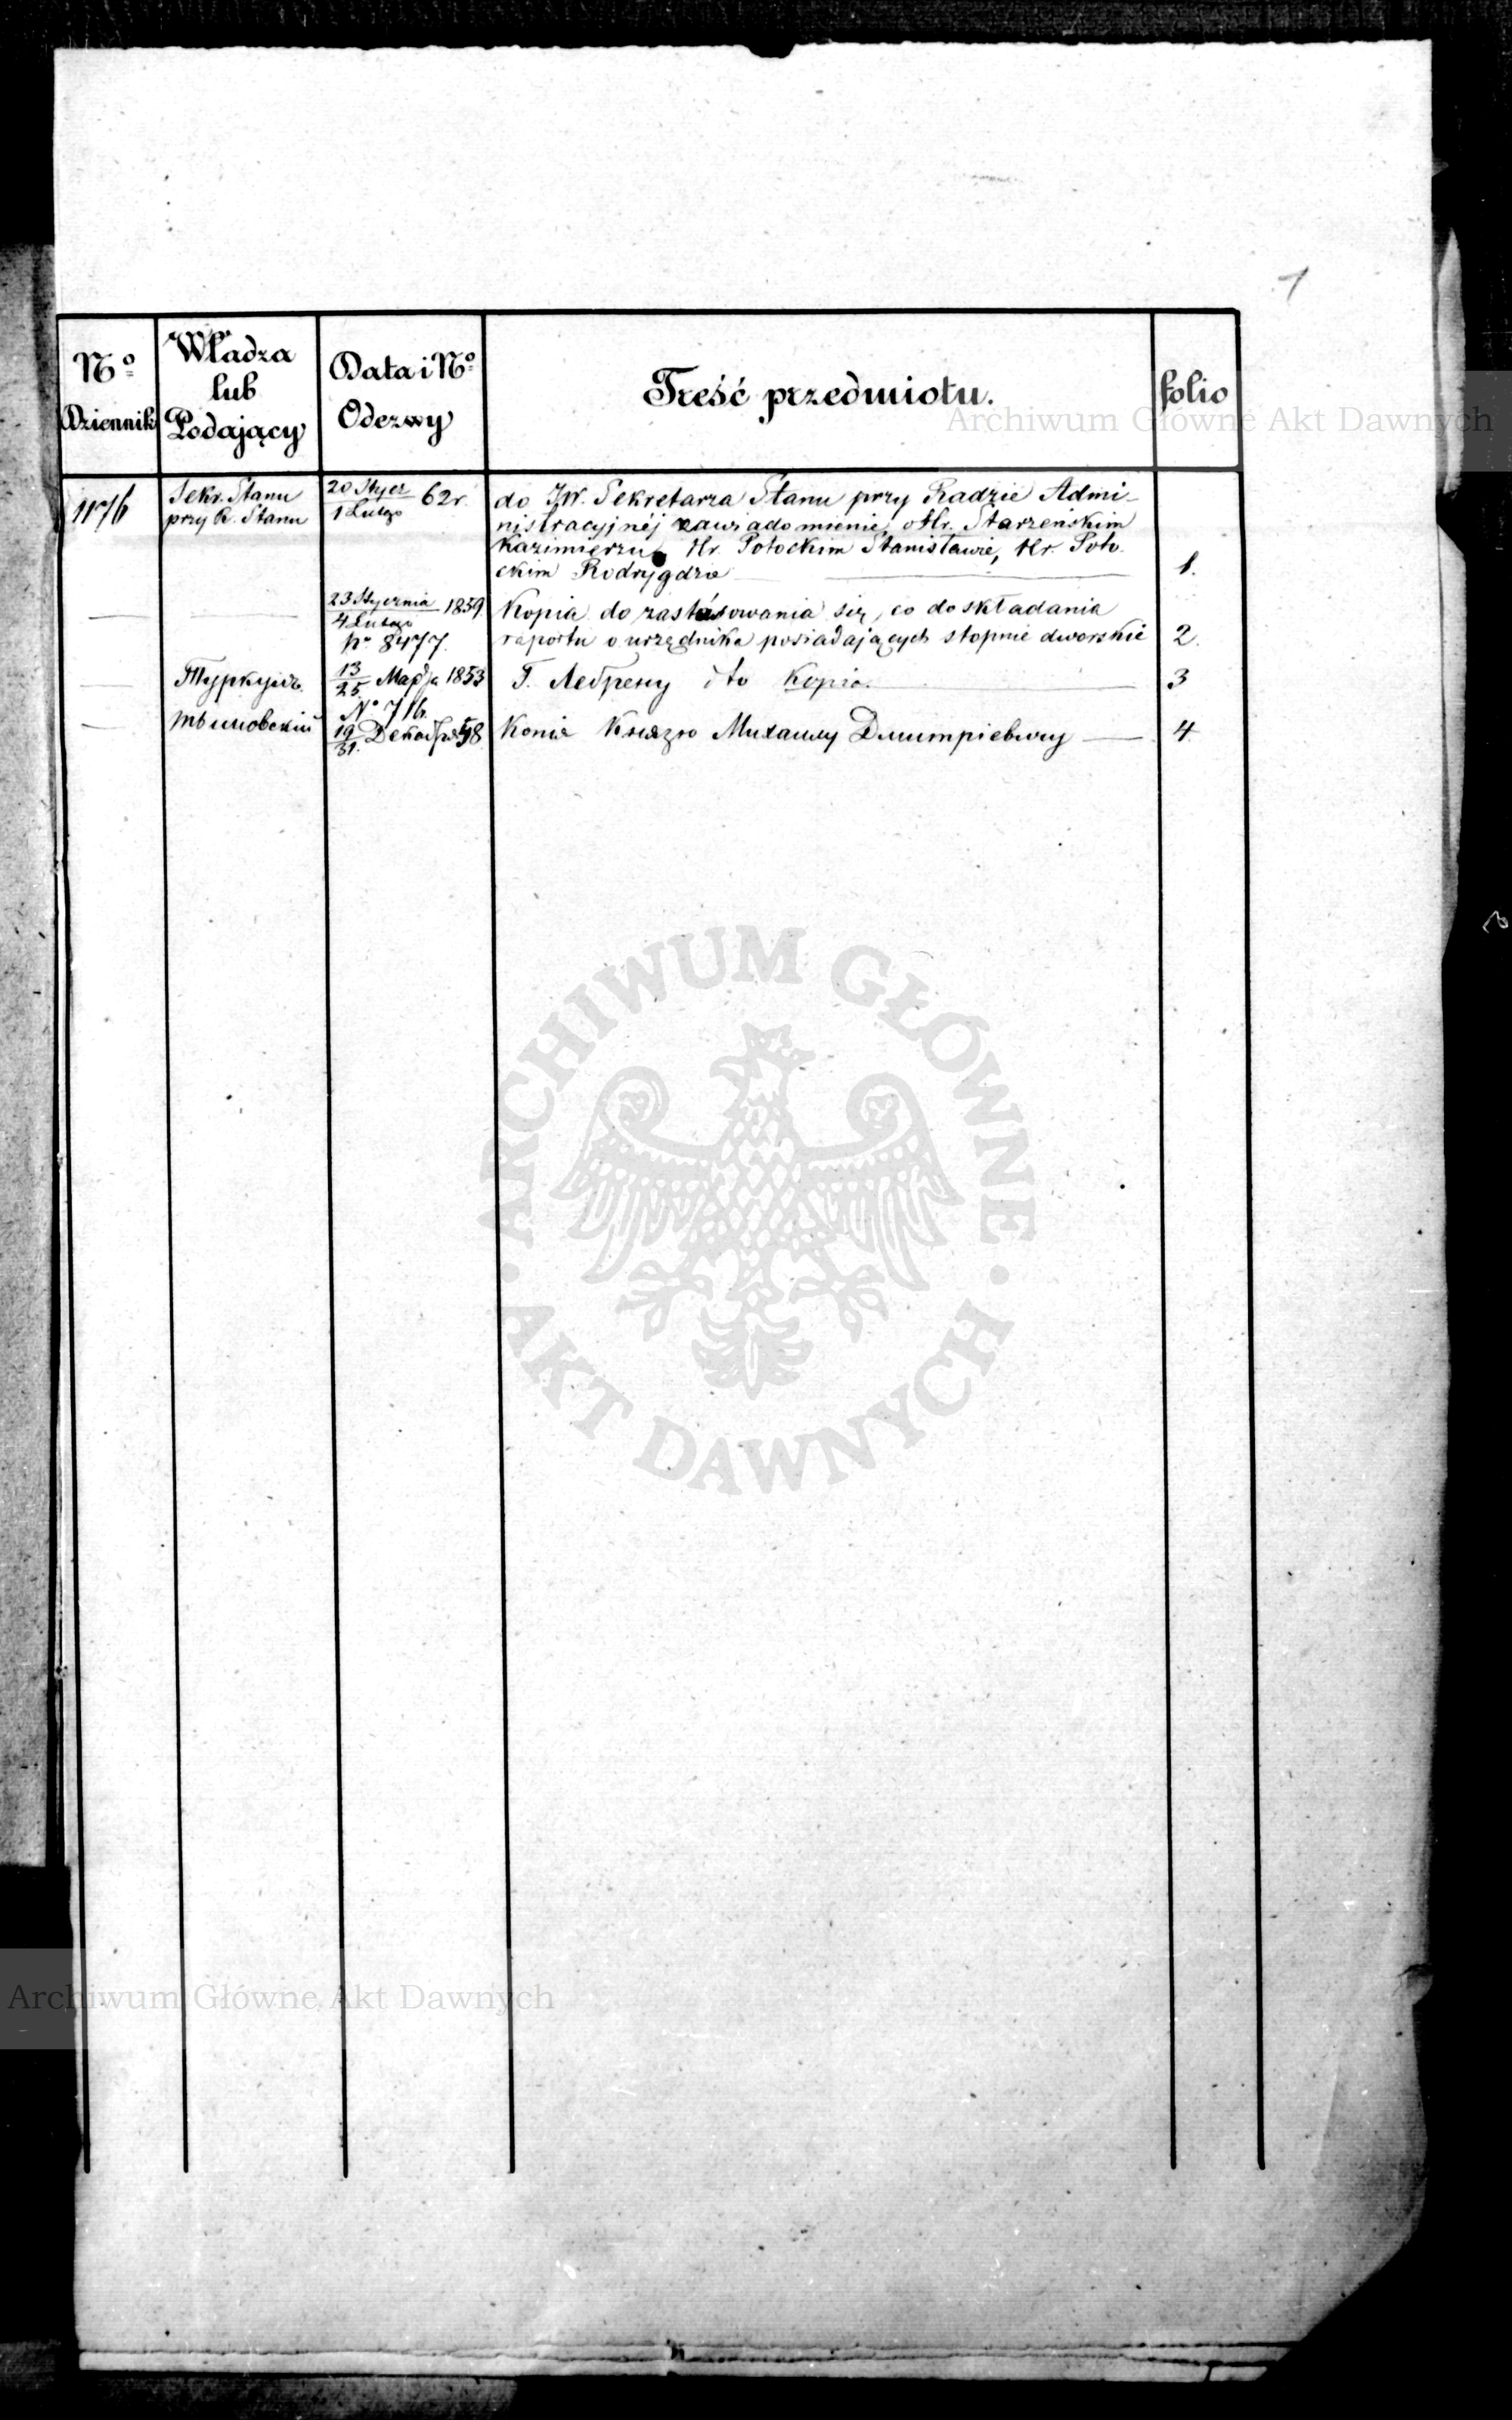 1
Nº Dziennik
Władza lub Podający
Data i Nº Odezwy
Treść przedmiotu.
folio
1176
Sekr. Stanu
przy R. Stanu
20 Stycz / 1 Lutego 62 r.
do JW. Sekretarza Stanu przy Radzie Admi-
nistracyjnéj zawiadomienie o Hr. Starzeńskim
Kazimierzu Hr. Potockim Stanisławie, Hr. Poto
ckim
1.
23 Stycznia / 4 Lutego 1859
Nº 8477.
Kopia do zastósowania się, co do składania
raportu o urzędnika posiadających stopnie dworskie
2.
13 / 25 Марта 1853
Nº 716.
Г. Лебрену dto Kopia.
3
19 / 31 Декабря 58
Копіа Князю Михаилу Дмитріевичу
4
Archiwum Główne Akt Dawnych
ARCHIWUM GŁÓWNE · AKT DAWNYCH ·
Archiwum Główne Akt Dawnych